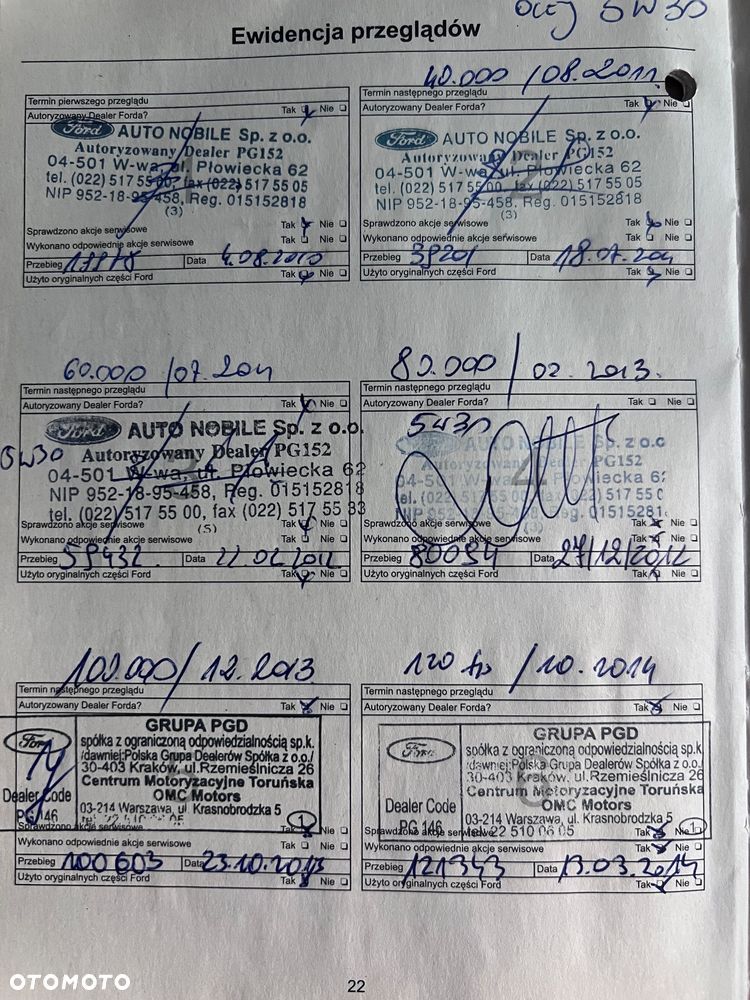 OLEJ 5W30
Ewidencja przeglądów
40.000 / 08.2011.
Termin pierwszego przeglądu
Autoryzowany Dealer Forda? Tak Nie
Ford AUTO NOBILE Sp. z o.o.
Autoryzowany Dealer PG152
04-501 W-wa, ul. Płowiecka 62
tel. (022) 517 55 00, fax (022) 517 55 05
NIP 952-18-95-458, Reg. 015152818
(3)
Sprawdzono akcje serwisowe Tak Nie
Wykonano odpowiednie akcje serwisowe Tak Nie
Przebieg Data 4.08.2010
Użyto oryginalnych części Ford Tak Nie
Termin następnego przeglądu
Autoryzowany Dealer Forda? Tak Nie
Ford AUTO NOBILE Sp. z o.o.
Autoryzowany Dealer PG152
04-501 W-wa, ul. Płowiecka 62
tel. (022) 517 55 00, fax (022) 517 55 05
NIP 952-18-95-458, Reg. 015152818
(3)
Sprawdzono akcje serwisowe Tak Nie
Wykonano odpowiednie akcje serwisowe Tak Nie
Przebieg 39201 Data 18.07.201
Użyto oryginalnych części Ford Tak Nie
60.000 / 07.2011
Termin następnego przeglądu
Autoryzowany Dealer Forda? Tak Nie
Ford AUTO NOBILE Sp. z o.o.
5W30 Autoryzowany Dealer PG152
04-501 W-wa, ul. Płowiecka 62
NIP 952-18-95-458, Reg. 015152818
tel. (022) 517 55 00, fax (022) 517 55 33
(5)
Sprawdzono akcje serwisowe Tak Nie
Wykonano odpowiednie akcje serwisowe Tak Nie
Przebieg 59432 Data 22 02 2012
Użyto oryginalnych części Ford Tak Nie
80.000 / 02.2013.
Termin następnego przeglądu
Autoryzowany Dealer Forda? Tak Nie
5W30
Ford AUTO NOBILE Sp. z o.o
Autoryzowany Dealer PG152
04-501 W-wa, ul. Płowiecka 62
tel. (022) 517 55 00, fax (022) 517 55 0
NIP 952-18-95-458, Reg. 01515281
(3)
Sprawdzono akcje serwisowe Tak Nie
Wykonano odpowiednie akcje serwisowe Tak Nie
Przebieg 80094 Data 27/12/2012
Użyto oryginalnych części Ford Tak Nie
100.000 / 12.2013
Termin następnego przeglądu
Autoryzowany Dealer Forda? Tak Nie
Ford
Dealer Code
PG 146
GRUPA PGD
spółka z ograniczoną odpowiedzialnością sp.k.
/dawniej:Polska Grupa Dealerów Spółka z o.o./
30-403 Kraków, ul.Rzemieślnicza 26
Centrum Motoryzacyjne Toruńska
OMC Motors
03-214 Warszawa, ul. Krasnobrodzka 5
tel. 22 510 06 05
1
Sprawdzono akcje serwisowe Tak Nie
Wykonano odpowiednie akcje serwisowe Tak Nie
Przebieg 100603 Data 23.10.2013
Użyto oryginalnych części Ford Tak Nie
120 / 10.2014
Termin następnego przeglądu
Autoryzowany Dealer Forda? Tak Nie
Ford
Dealer Code
PG 146
GRUPA PGD
spółka z ograniczoną odpowiedzialnością sp.k.
/dawniej:Polska Grupa Dealerów Spółka z o.o./
30-403 Kraków, ul.Rzemieślnicza 26
Centrum Motoryzacyjne Toruńska
OMC Motors
03-214 Warszawa, ul. Krasnobrodzka 5
tel. 22 510 06 05
1
Sprawdzono akcje serwisowe Tak Nie
Wykonano odpowiednie akcje serwisowe Tak Nie
Przebieg 121343 Data 13.03.2014
Użyto oryginalnych części Ford Tak Nie
22
OTOMOTO